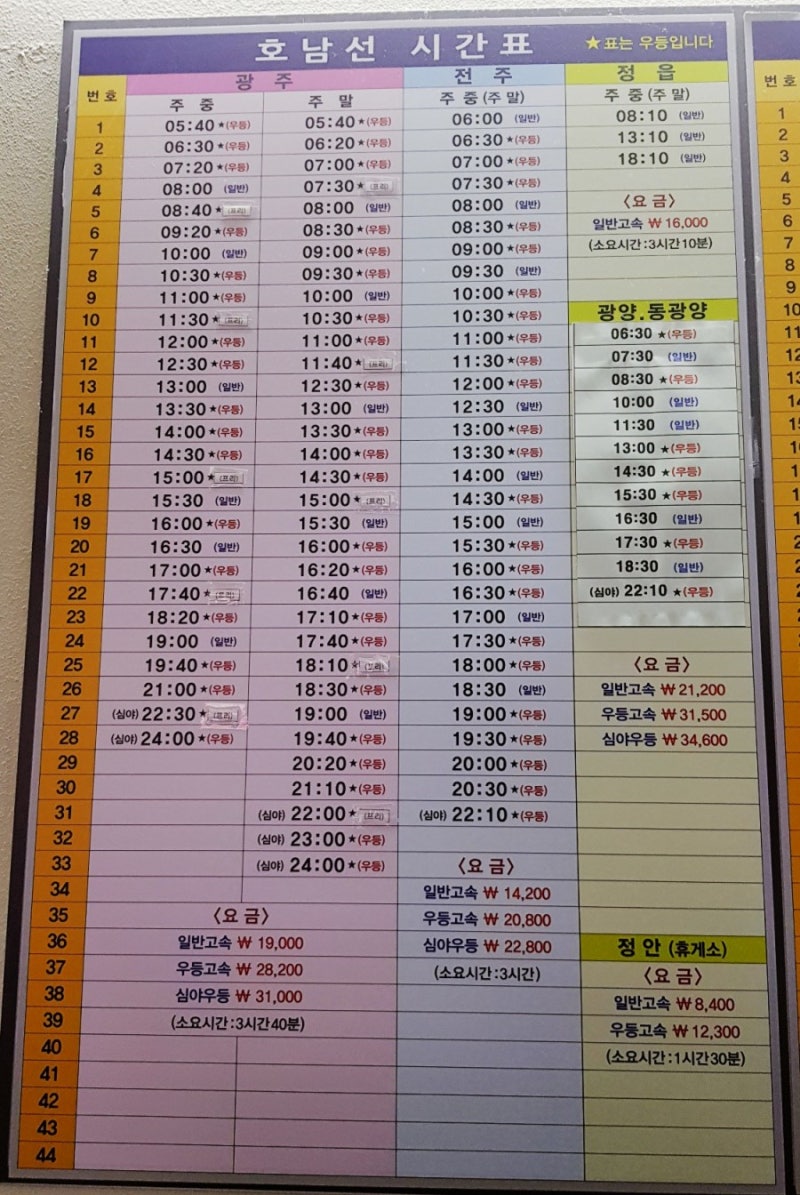 호남선 시간표 ★표는 우등입니다
번호 광주 전주 정읍 번호
주중 주말 주중(주말) 주중(주말)
1 05:40★(우등) 05:40★(우등) 06:00 (일반) 08:10 (일반) 1
2 06:30★(우등) 06:20★(우등) 06:30★(우등) 13:10 (일반) 2
3 07:20★(우등) 07:00★(우등) 07:00★(우등) 18:10 (일반) 3
4 08:00 (일반) 07:30★(프리) 07:30★(우등) 4
5 08:40★(프리) 08:00 (일반) 08:00 (일반) <요금> 5
6 09:20★(우등) 08:30★(우등) 08:30★(우등) 일반고속 ₩16,000 6
7 10:00 (일반) 09:00★(우등) 09:00★(우등) (소요시간:3시간10분) 7
8 10:30★(우등) 09:30★(우등) 09:30 (일반) 8
9 11:00★(우등) 10:00 (일반) 10:00★(우등) 9
10 11:30★(프리) 10:30★(우등) 10:30★(우등) 광양.동광양 10
11 12:00★(우등) 11:00★(우등) 11:00★(우등) 06:30 ★(우등)
12 12:30★(우등) 11:40★(프리) 11:30★(우등) 07:30 (일반)
13 13:00 (일반) 12:30★(우등) 12:00★(우등) 08:30 ★(우등)
14 13:30★(우등) 13:00 (일반) 12:30 (일반) 10:00 (일반)
15 14:00★(우등) 13:30★(우등) 13:00★(우등) 11:30 (일반)
16 14:30★(우등) 14:00★(우등) 13:30★(우등) 13:00 ★(우등)
17 15:00★(프리) 14:30★(우등) 14:00 (일반) 14:30 ★(우등)
18 15:30 (일반) 15:00★(프리) 14:30★(우등) 15:30 ★(우등)
19 16:00★(우등) 15:30 (일반) 15:00 (일반) 16:30 (일반)
20 16:30 (일반) 16:00★(우등) 15:30★(우등) 17:30 ★(우등)
21 17:00★(우등) 16:20★(우등) 16:00★(우등) 18:30 (일반)
22 17:40★(프리) 16:40 (일반) 16:30★(우등) (심야) 22:10 ★(우등)
23 18:20★(우등) 17:10★(우등) 17:00 (일반)
24 19:00 (일반) 17:40★(우등) 17:30★(우등)
25 19:40★(우등) 18:10★(프리) 18:00★(우등) <요금>
26 21:00★(우등) 18:30★(우등) 18:30 (일반) 일반고속 ₩21,200
27 (심야) 22:30★(프리) 19:00 (일반) 19:00★(우등) 우등고속 ₩31,500
28 (심야) 24:00★(우등) 19:40★(우등) 19:30★(우등) 심야우등 ₩34,600
29 20:20★(우등) 20:00★(우등)
30 21:10★(우등) 20:30★(우등)
31 (심야) 22:00★(프리) (심야) 22:10★(우등)
32 (심야) 23:00★(우등)
33 (심야) 24:00★(우등) <요금>
34 일반고속 ₩14,200
35 <요금> 우등고속 ₩20,800
36 일반고속 ₩19,000 심야우등 ₩22,800 정안 (휴게소)
37 우등고속 ₩28,200 (소요시간:3시간) <요금>
38 심야우등 ₩31,000 일반고속 ₩8,400
39 (소요시간:3시간40분) 우등고속 ₩12,300
40 (소요시간:1시간30분)
41
42
43
44